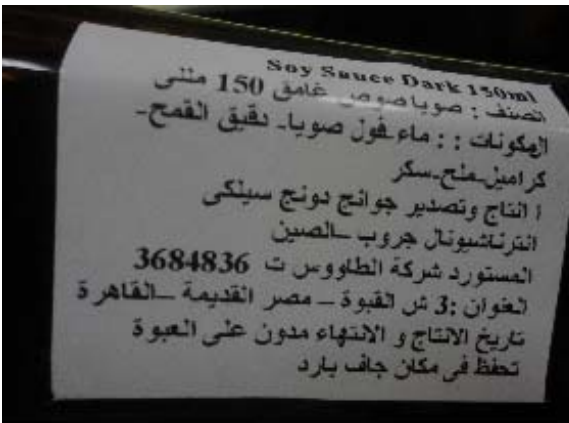 Soy Sauce Dark 150ml
الصنف : صوياصوص غامق 150 مللى
المكونات : : ماء فول صويا- دقيق القمح-
كراميل-ملح-سكر
ا انتاج وتصدير جوانج دونج سيلكى
انترناشيونال جروب –الصين
المستورد شركة الطاووس ت 3684836
العنوان :3 ش القبوة – مصر القديمة –القاهرة
تاريخ الانتاج و الانتهاء مدون على العبوة
تحفظ فى مكان جاف بارد